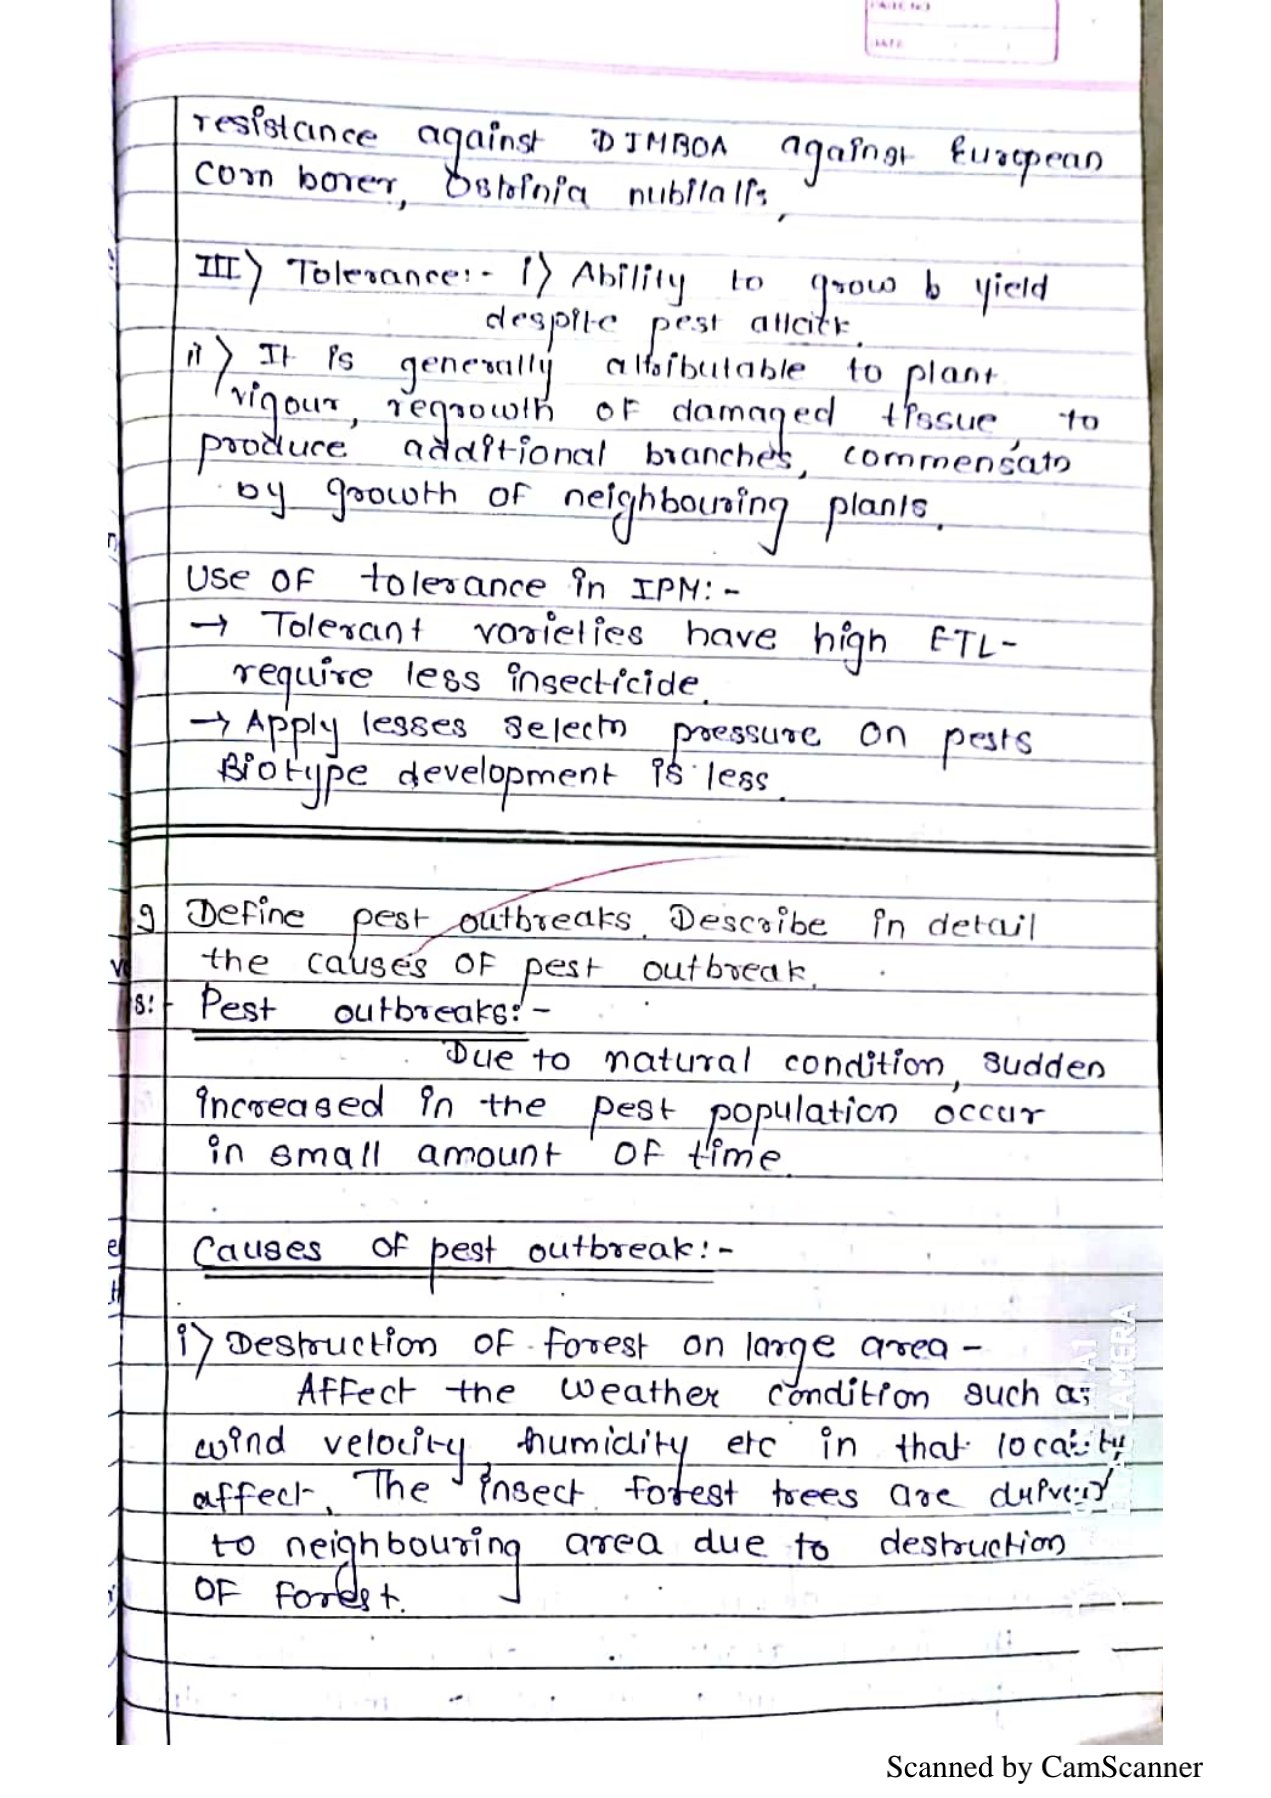 PAGE No.
DATE
resistance against DIMBOA against European
corn borer, Ostrinia nubilalis,
III) Tolerance:- i) Ability to grow & yield
despite pest attack.
ii) It is generally attributable to plant
vigour, regrowth of damaged tissue, to
produce additional branches,
by growth of neighbouring plants.
Use of tolerance in IPM:-
→ Tolerant varieties have high ETL-
require less insecticide.
→ Apply lesses selectn pressure on pests
Biotype development is less.
9 Define pest outbreaks. Describe in detail
the causes of pest outbreak.
s:- Pest outbreaks:-
Due to natural condition, sudden
increased in the pest population occur
in small amount of time.
Causes of pest outbreak:-
i) Destruction of forest on large area -
Affect the weather condition such as
wind velocity, humidity etc in that locality
affect. The insect forest trees are
to neighbouring area due to destruction
of forest.
Scanned by CamScanner